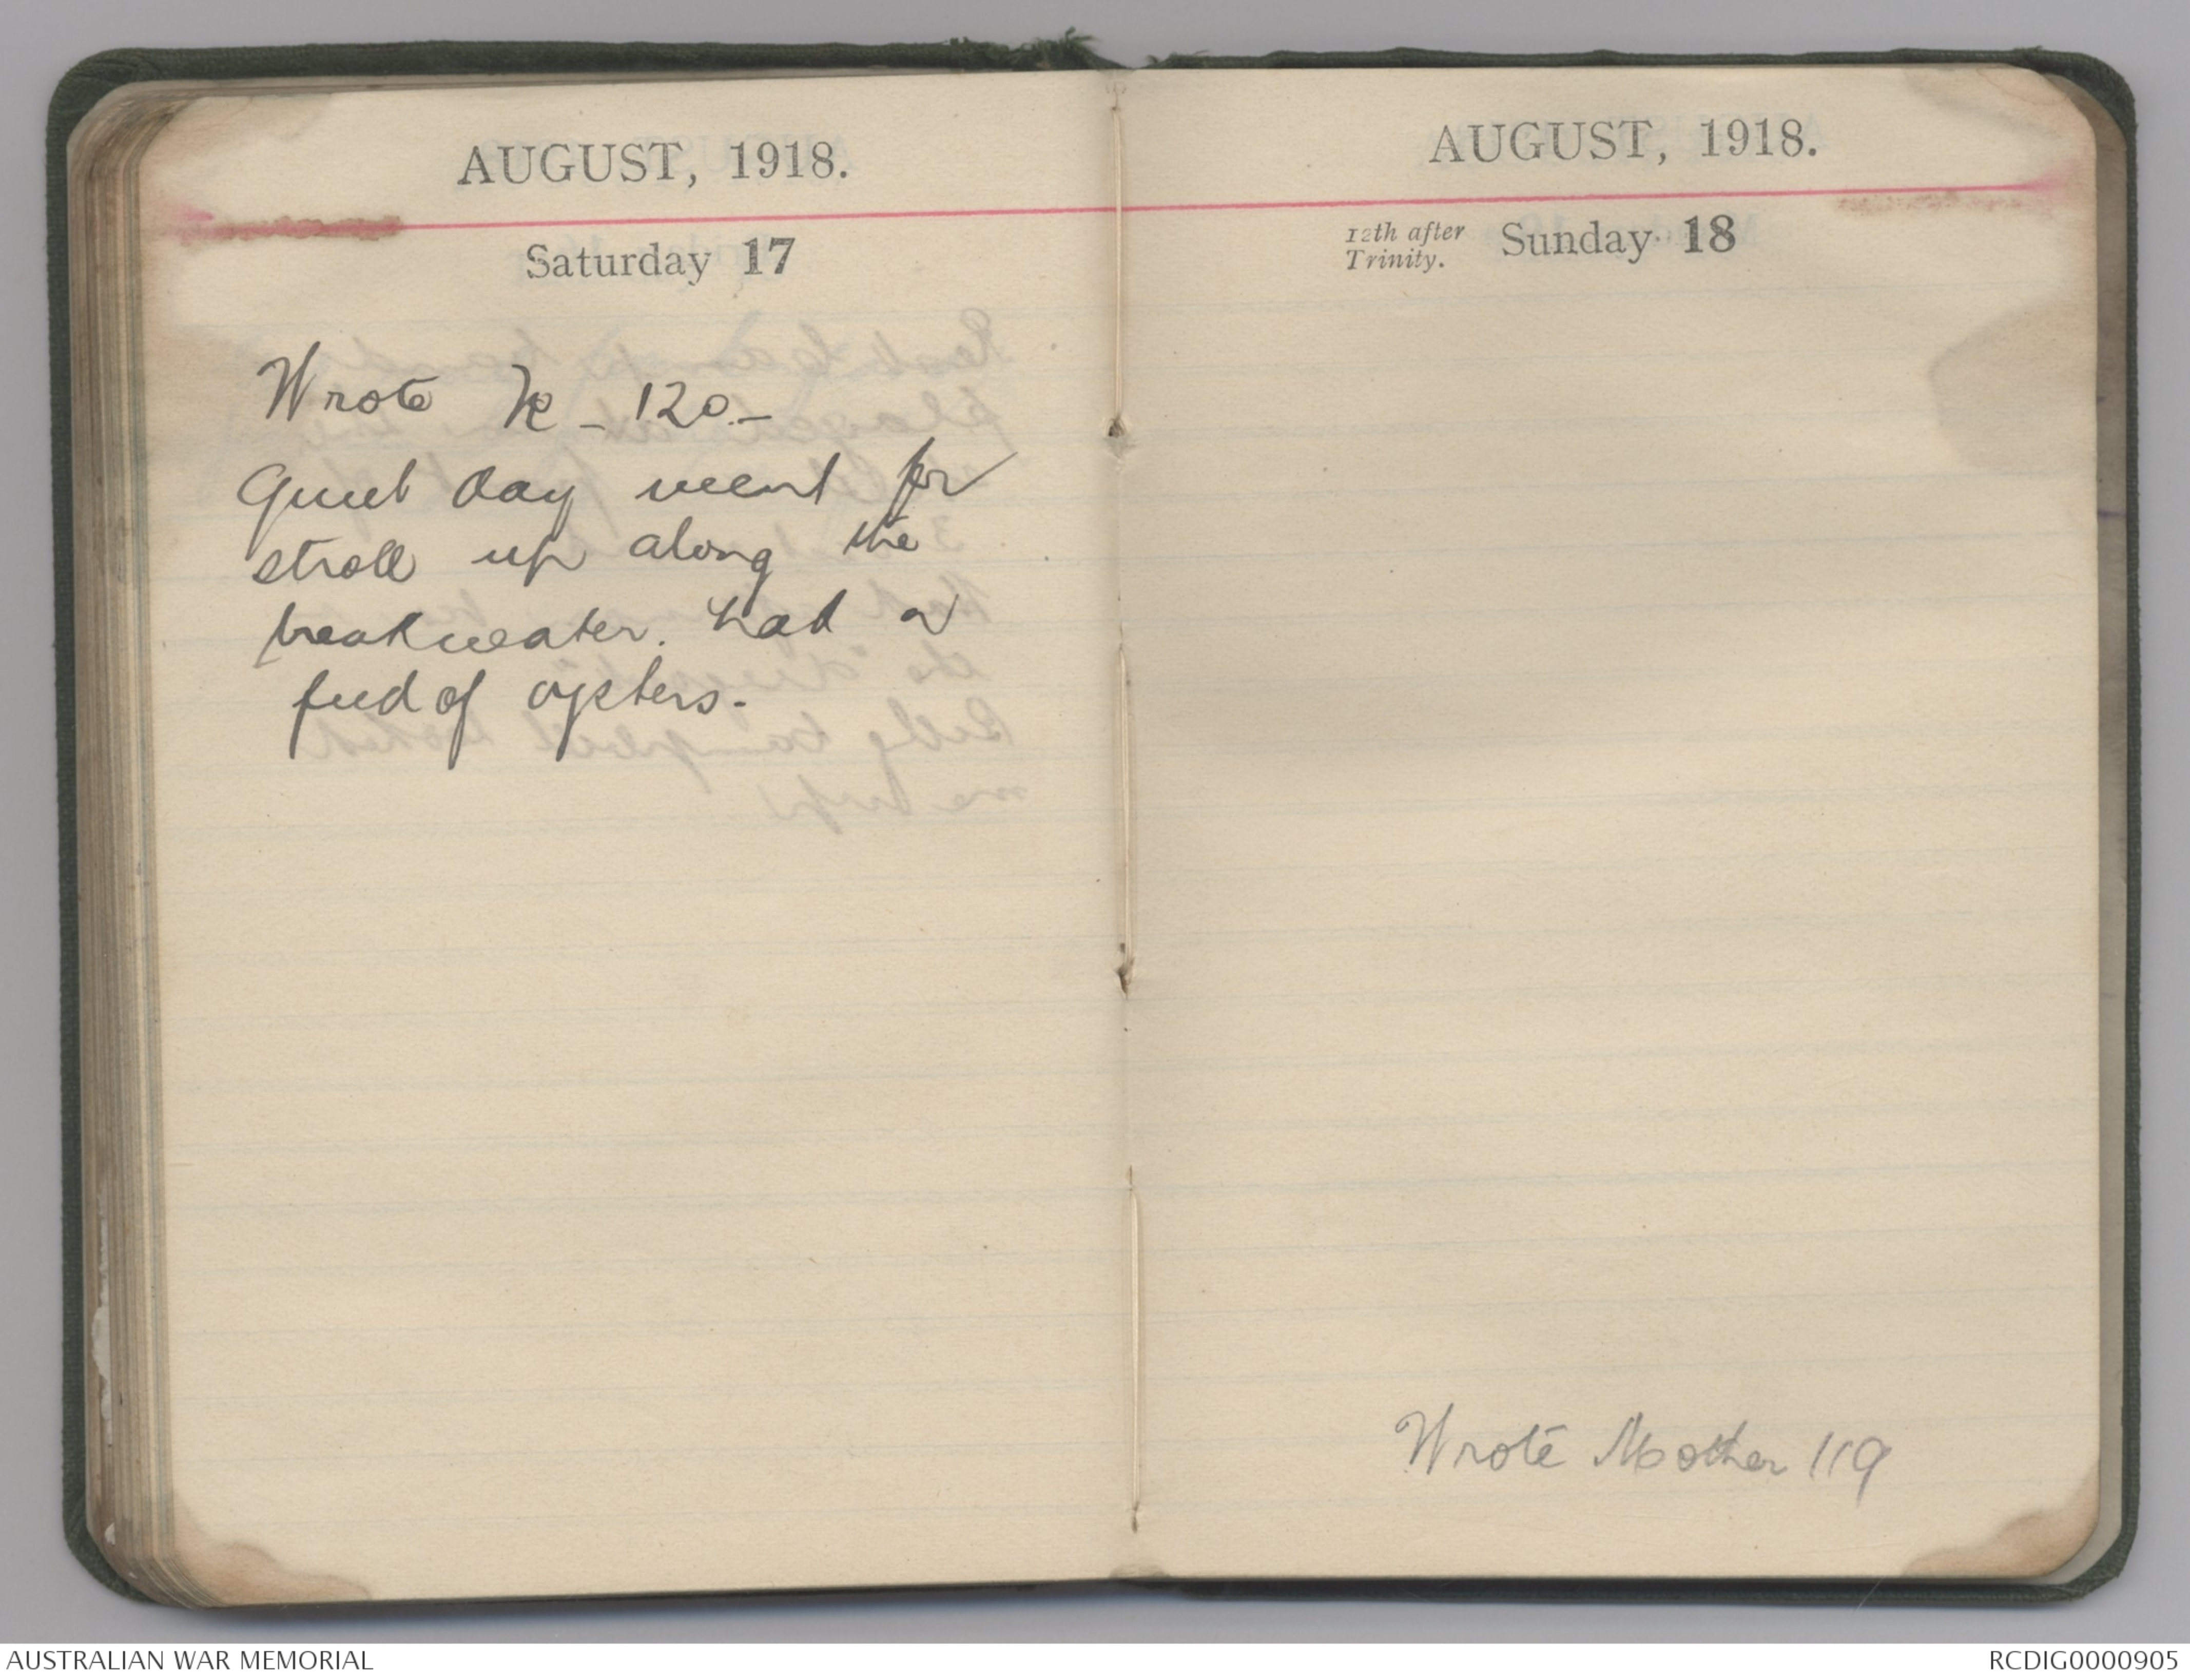 AUGUST, 1918.
Saturday 17
Wrote K - 120.-
Quiet day went for
stroll up along the
breakwater. had a
feed of oysters.
AUGUST, 1918.
12th after
Trinity.
Sunday 18
Wrote Mother 119
AUSTRALIAN WAR MEMORIAL
RCDIG0000905